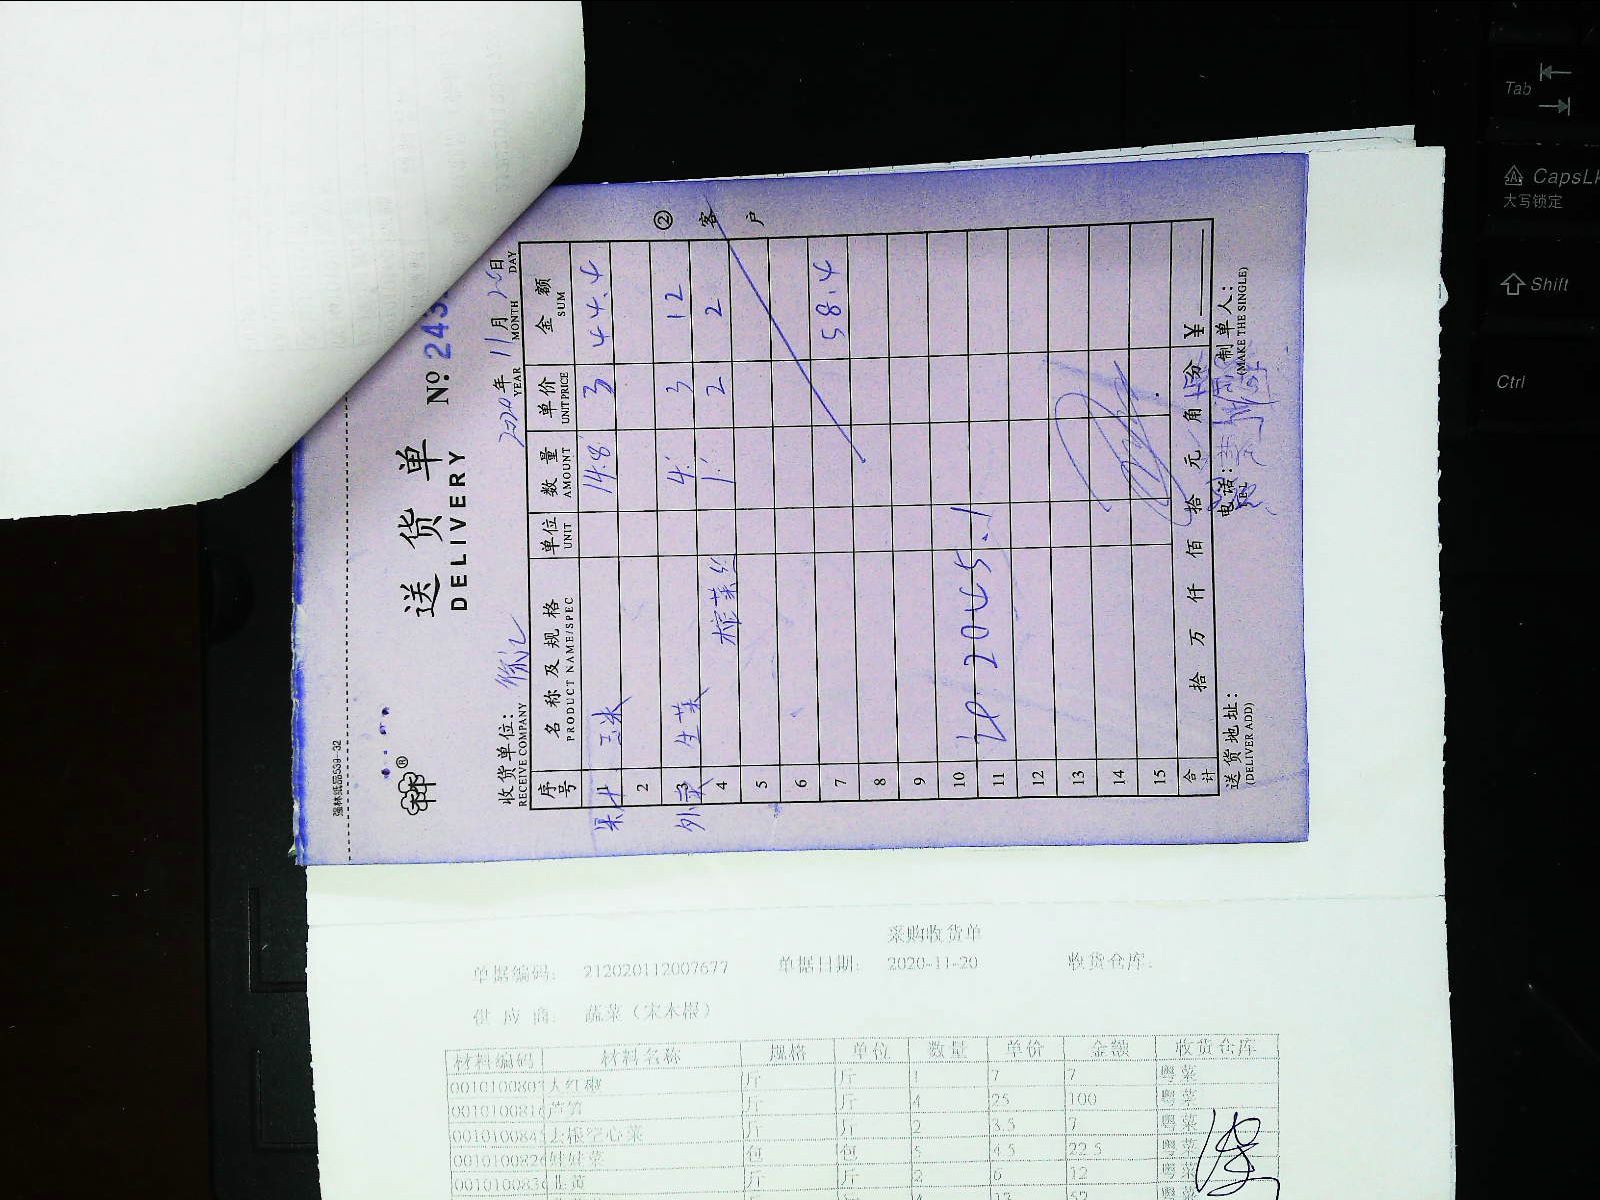 强林纸品539-32
®
送货单
DELIVERY
No. 243
收货单位：
RECEIVE COMPANY
2020年 11月 20日
YEAR MONTH DAY
序号 名称及规格 单位 数量 单价 金额
PRODUCT NAME/SPEC UNIT AMOUNT UNIT PRICE SUM
1 玉米 14.8 3 44.4
2
3 生菜 4 3 12
4 榨菜丝 1 2 2
5
6
7 58.4
8
9
10
11 2045.1
12
13
14
15
合计 拾 万 仟 佰 拾 元 角 分 ¥
送货地址： 电话： 制单人：
(DELIVER ADD) TEL (MAKE THE SINGLE)
② 客户
采购收货单
单据编码: 212020112007677 单据日期: 2020-11-20 收货仓库:
供应商: 蔬菜（宋本根）
材料编码 材料名称 规格 单位 数量 单价 金额 收货仓库
大红椒 斤 斤 1 7 7 粤菜
芦笋 斤 斤 4 25 100 粤菜
去根空心菜 斤 斤 2 3.5 7 粤菜
娃娃菜 包 包 5 4.5 22.5 粤菜
韭黄 斤 斤 2 6 12 粤菜
Tab
CapsLk
大写锁定
Shift
Ctrl